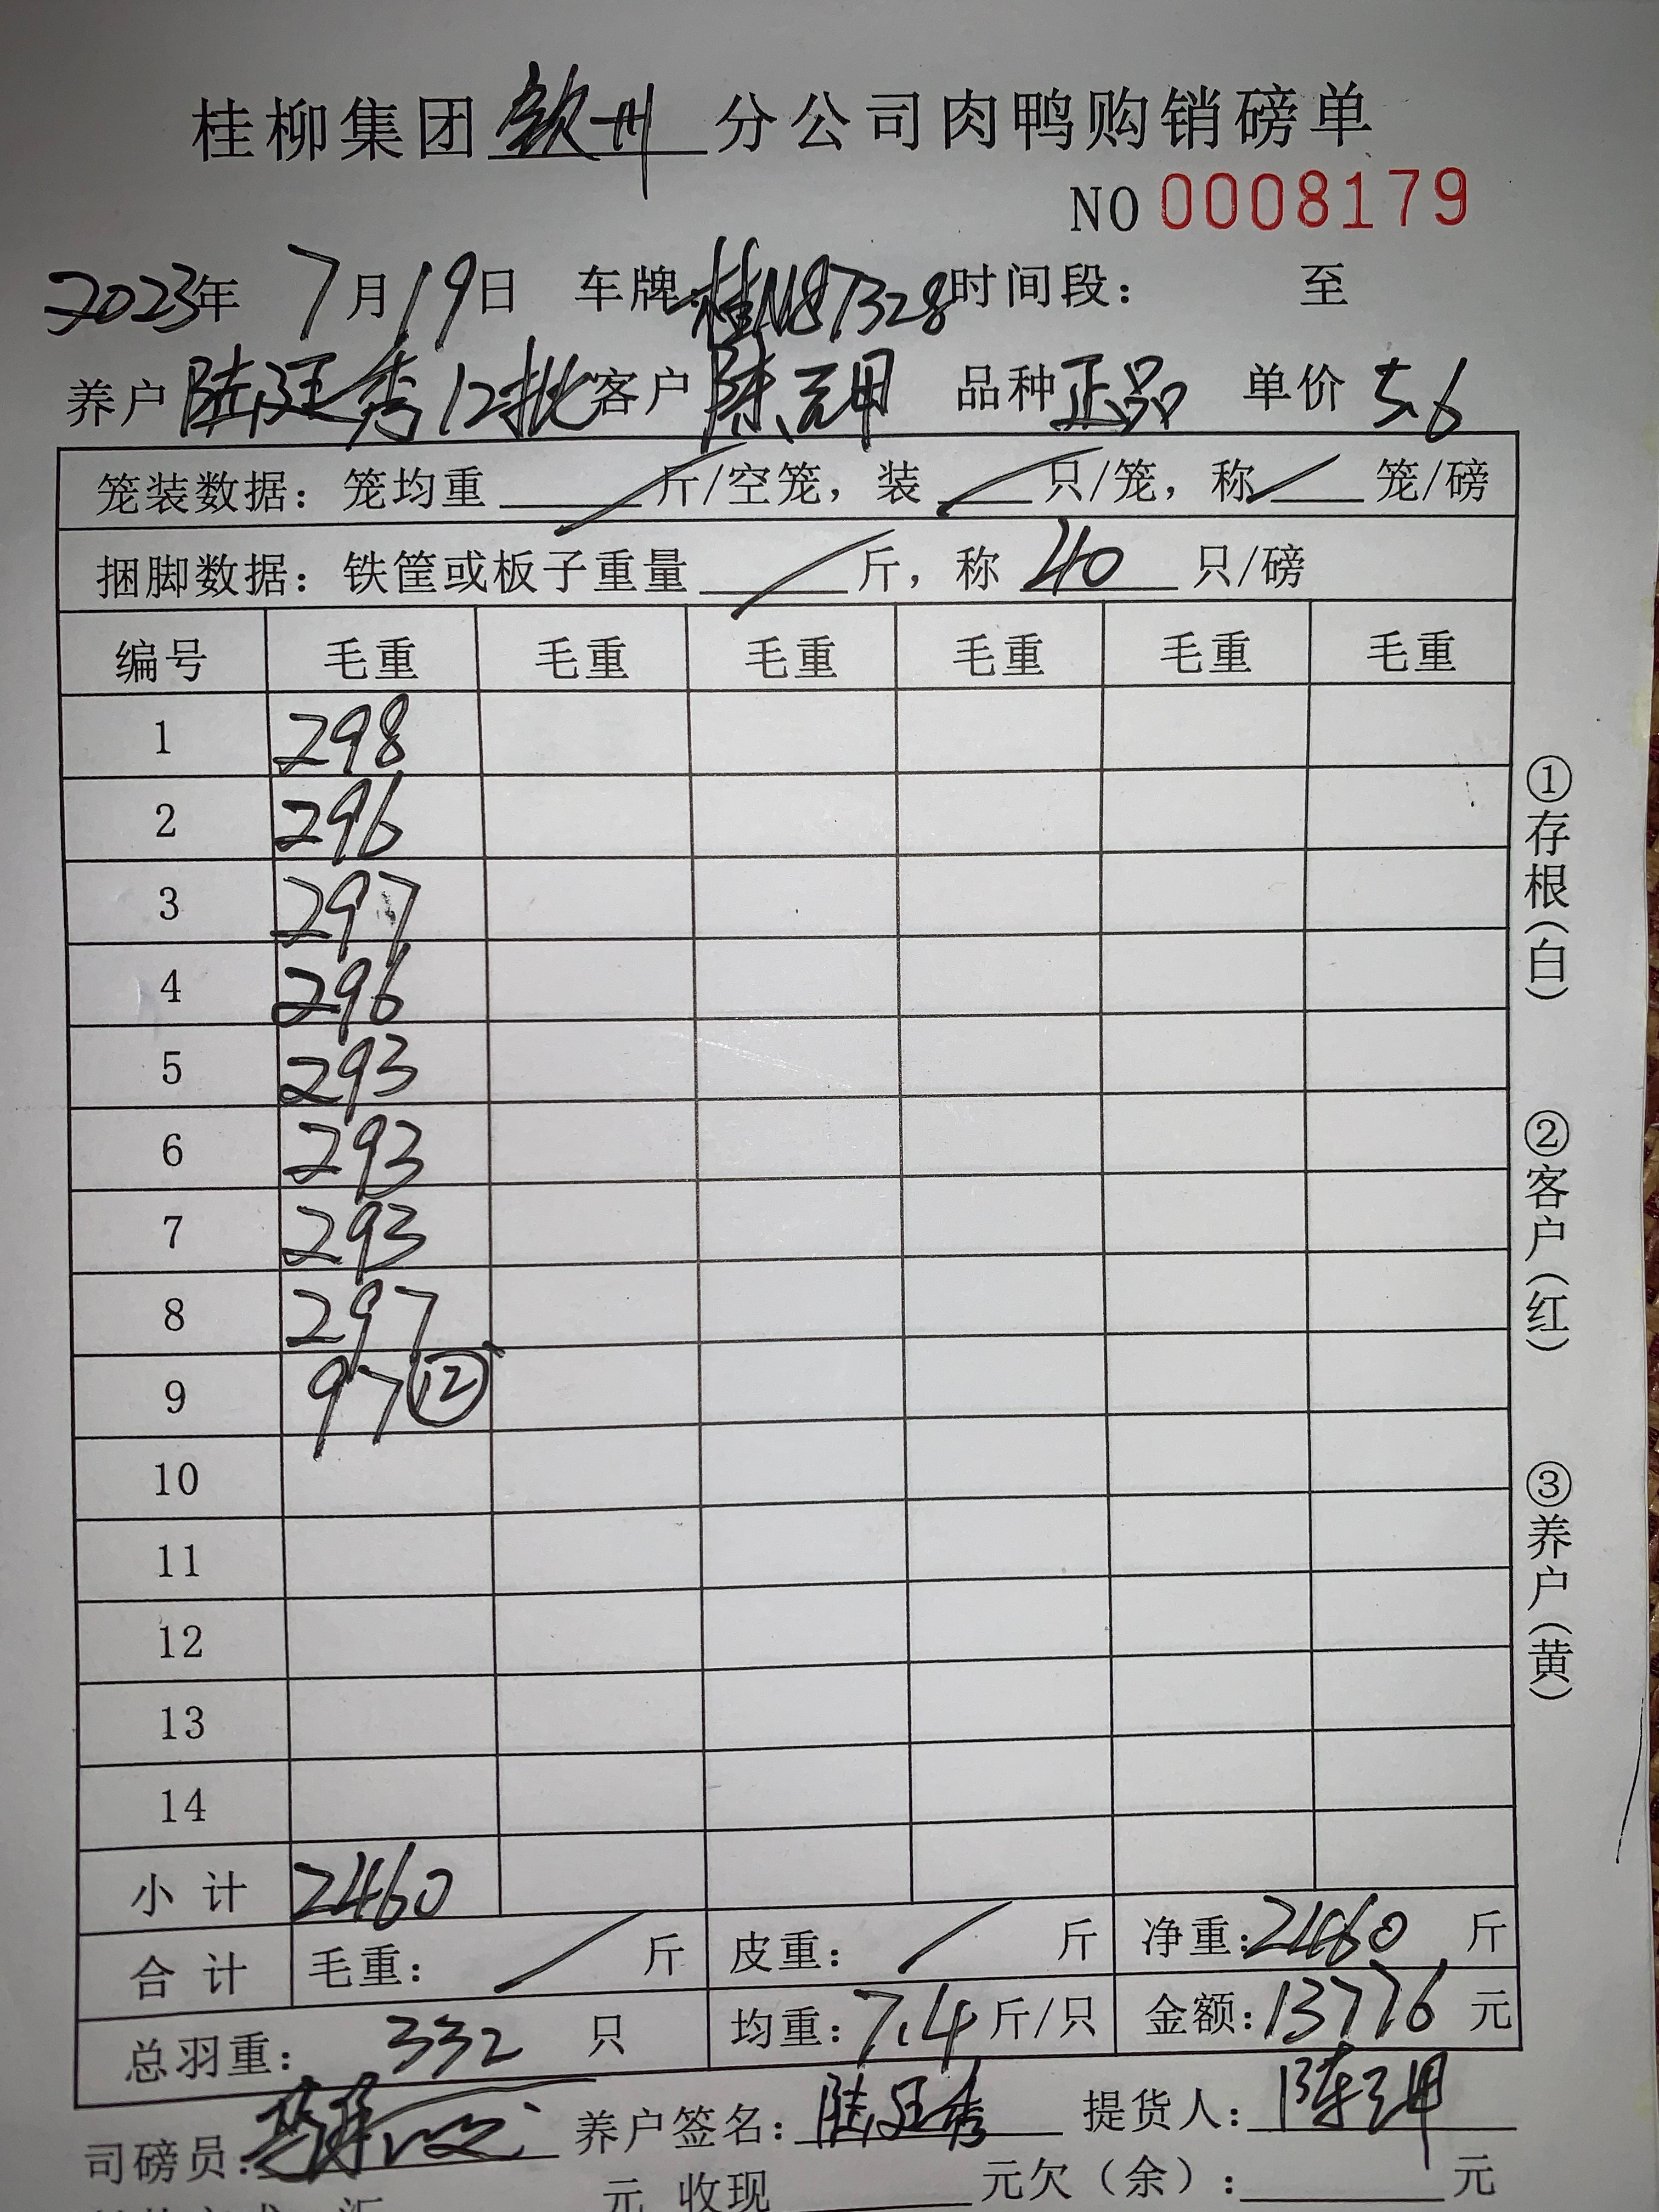 桂柳集团钦州分公司肉鸭购销磅单
NO 0008179
2023年 7月19日 车牌:桂N87328 时间段: 至
养户 陆廷秀12批 客户 陈元甲 品种 正品 单价 5.6
笼装数据:笼均重 / 斤/空笼,装 / 只/笼,称 / 笼/磅
捆脚数据:铁筐或板子重量 / 斤,称 40 只/磅
编号 毛重 毛重 毛重 毛重 毛重 毛重
1 298
2 296
3 297
4 296
5 293
6 293
7 293
8 297
9 97 ⑫
10
11
12
13
14
小计 2460
合计 毛重: / 斤 皮重: / 斤 净重:2460 斤
总羽重: 332 只 均重:7.4斤/只 金额:13776 元
司磅员: 养户签名:陆廷秀 提货人:
元 收现 元欠(余): 元
①存根(白)
②客户(红)
③养户(黄)